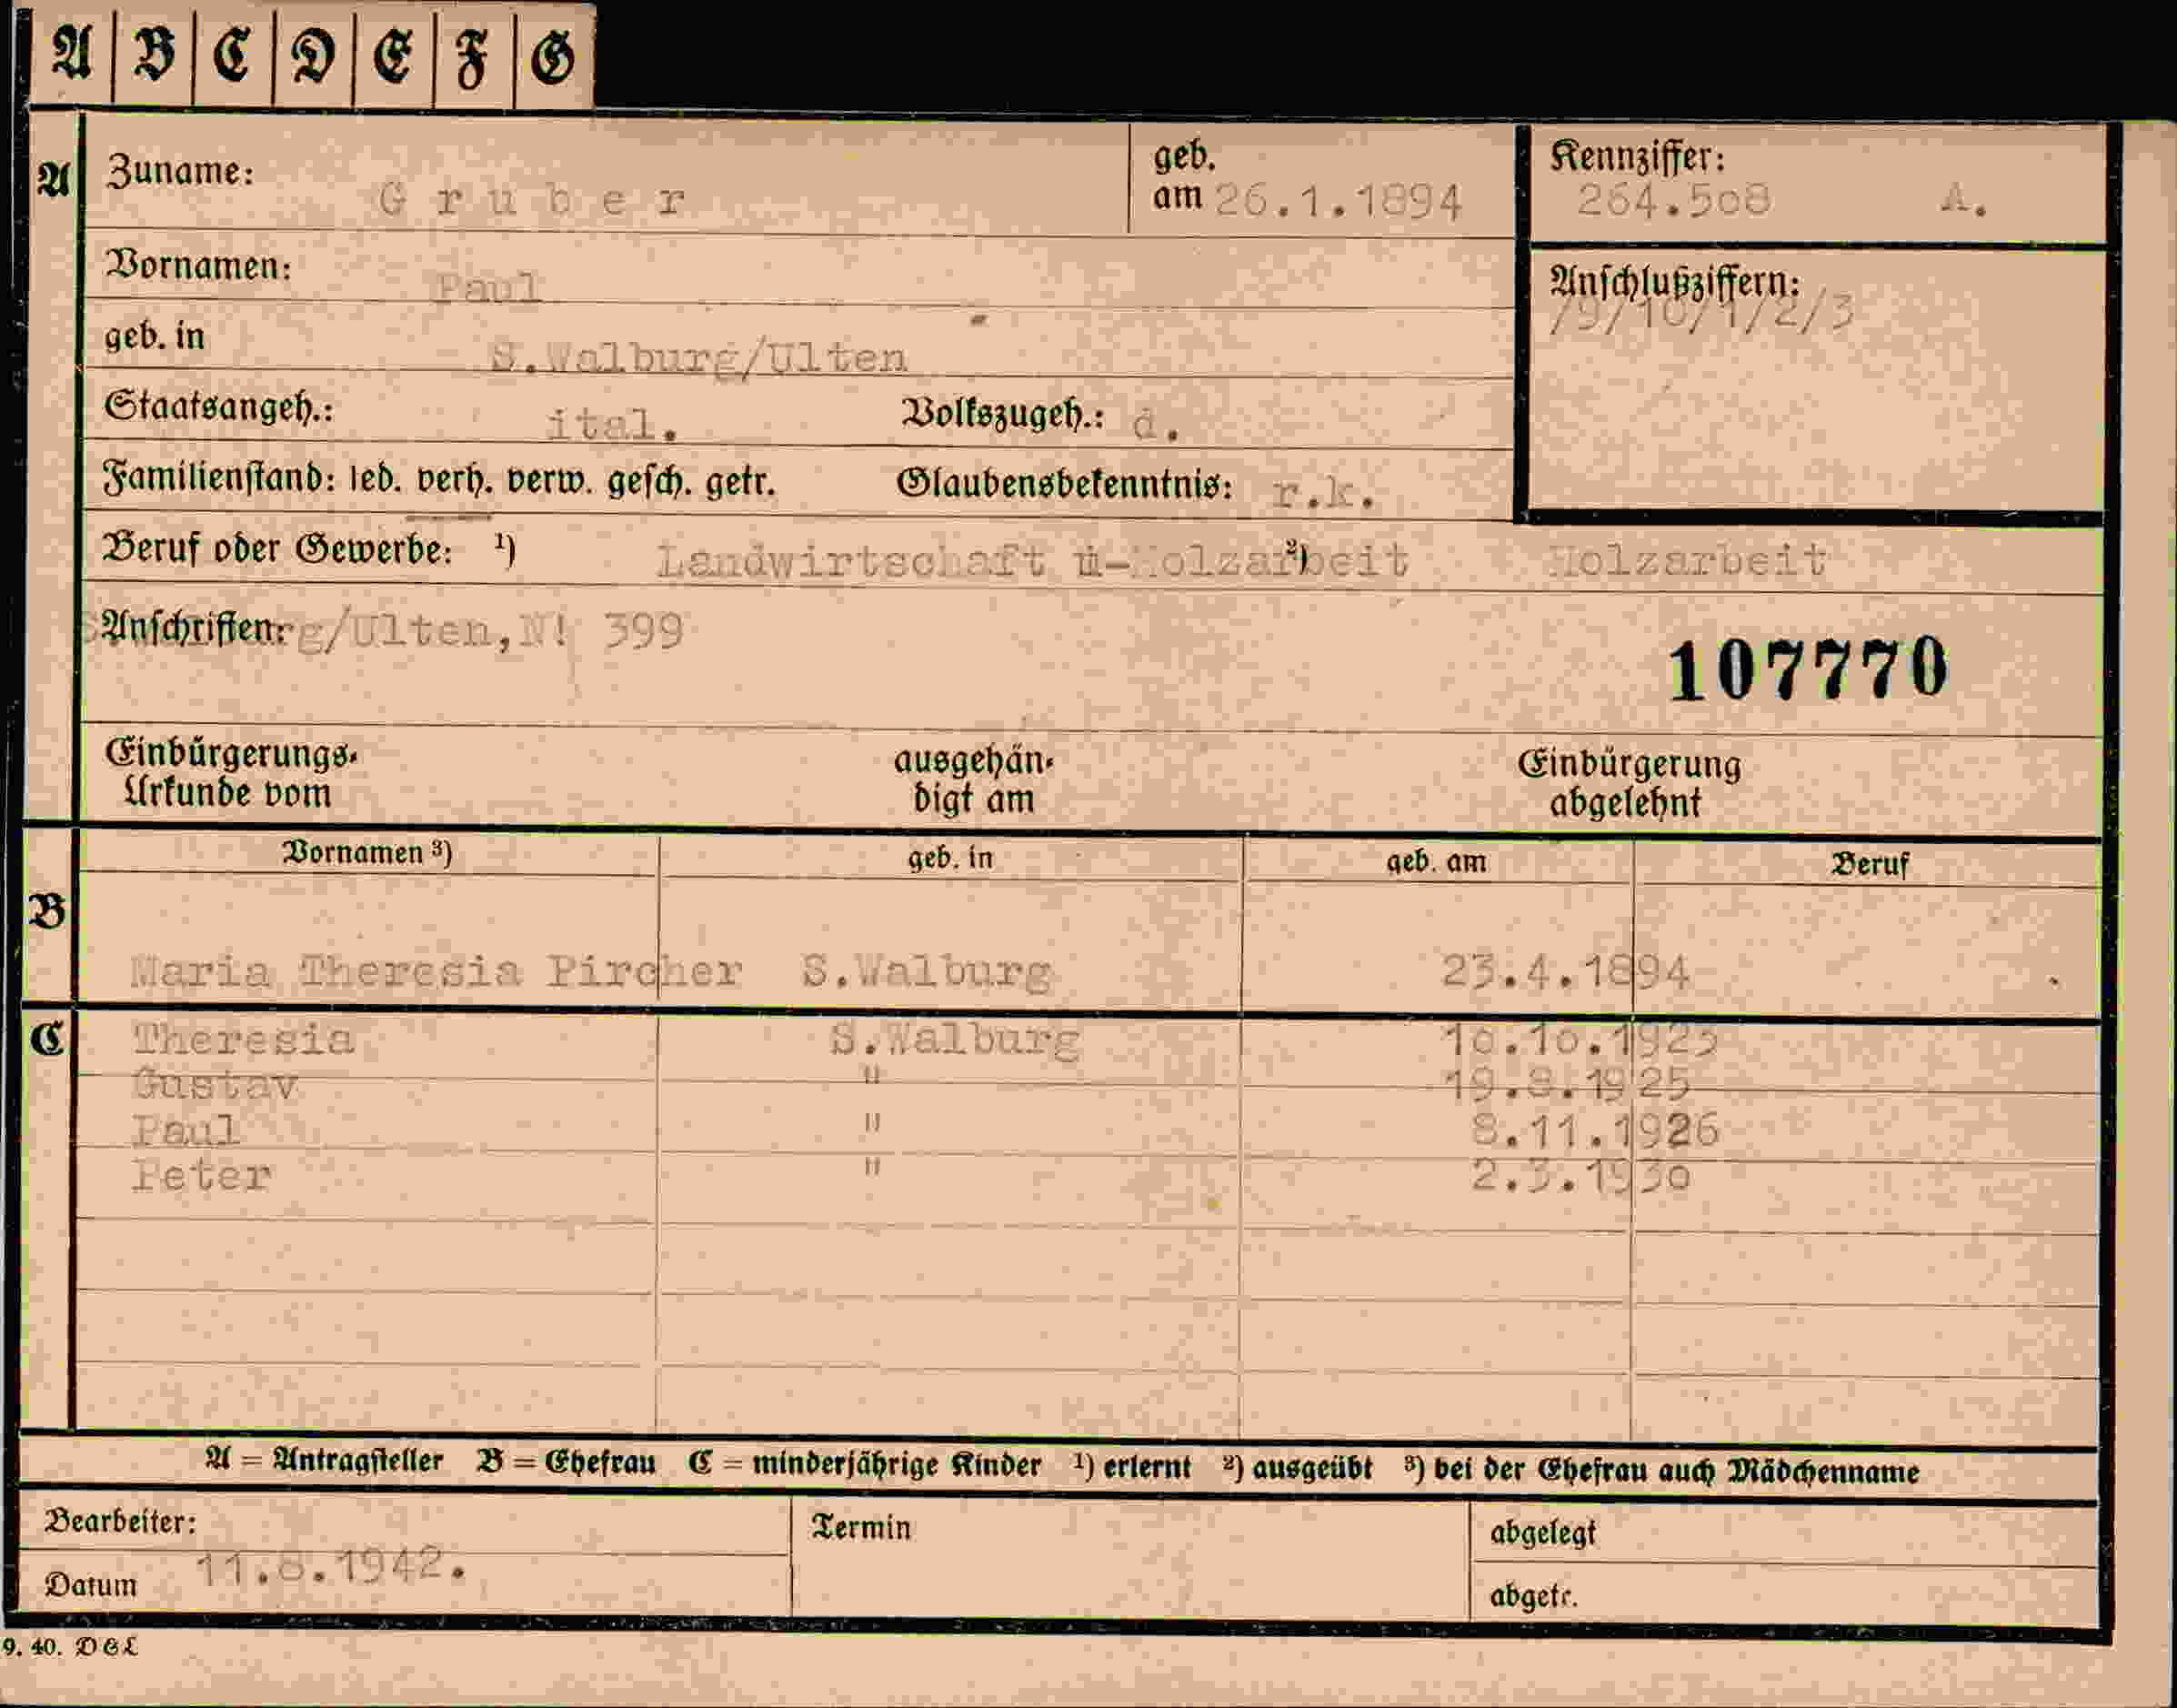 A B C D E F G
A Zuname: Gruber geb. am 26.1.1894 Kennziffer: 264.508 A.
Vornamen: Paul Anschlußziffern: /9/10/1/2/3
geb. in S.Walburg/Ulten
Staatsangeh.: ital. Volkszugeh.: d.
Familienstand: led. verh. verw. gesch. getr. Glaubensbekenntnis: r.k.
Beruf oder Gewerbe: ¹) Landwirtschaft u-Holzarbeit ²) Holzarbeit
Anschriften: rg/Ulten,N! 399
107770
Einbürgerungs- Urkunde vom ausgehän- digt am Einbürgerung abgelehnt
Vornamen ³) geb. in geb. am Beruf
B Maria Theresia Pircher S.Walburg 23.4.1894
C Theresia S.Walburg 10.10.1923
Gustav " 19.8.1925
Paul " 8.11.1926
Peter " 2.3.1930
A = Antragsteller B = Ehefrau C = minderjährige Kinder ¹) erlernt ²) ausgeübt ³) bei der Ehefrau auch Mädchenname
Bearbeiter: Termin abgelegt
Datum 11.8.1942. abgetr.
9. 40. DGL